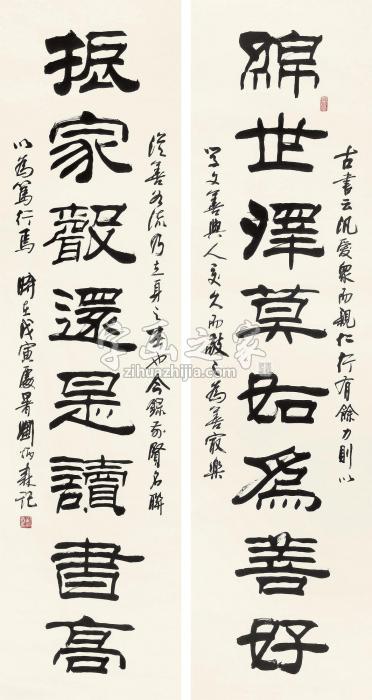 古書云汎愛眾而親仁行有餘力則以
綿世澤莫如為善好
學文善與人交久而敬之為善最樂
從善如流乃立身之也今錄前賢名聯
振家聲還是讀書高
以為篤行焉 時在戊寅處暑劉炳森記
字画之家
zihunzhijia.com